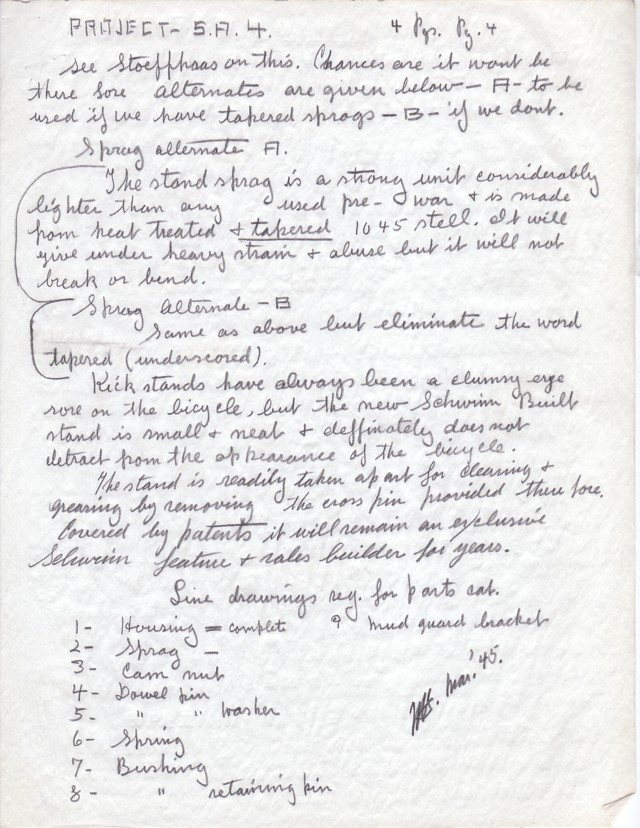 PROJECT- S.A. 4. 4 Pgs. Pg. 4
See Stoeffhaas on this. Chances are it wont be
there fore alternates are given below - A - to be
used if we have tapered sprags - B - if we dont.
Sprag alternate A.
The stand sprag is a strong unit considerably
lighter than any used pre-war & is made
from heat treated & tapered 1045 stell. It will
give under heavy strain & abuse but it will not
break or bend.
Sprag Alternate - B
Same as above but eliminate the word
tapered (underscored).
Kick stands have always been a clumsy eye
sore on the bicycle, but the new Schwinn Built
stand is small & neat & deffinately does not
detract from the appearance of the bicycle.
The stand is readily taken apart for cleaning &
greasing by removing the cross pin provided there fore.
Covered by patents it will remain an exclusive
Schwinn feature & sales builder for years.
Line drawings req. for parts cat.
1- Housing = complete 9 mud guard bracket
2- Sprag -
3- Cam nut
4- Dowel pin
5- " " washer
6- Spring
7- Bushing
8- " retaining pin
Mar. '45.